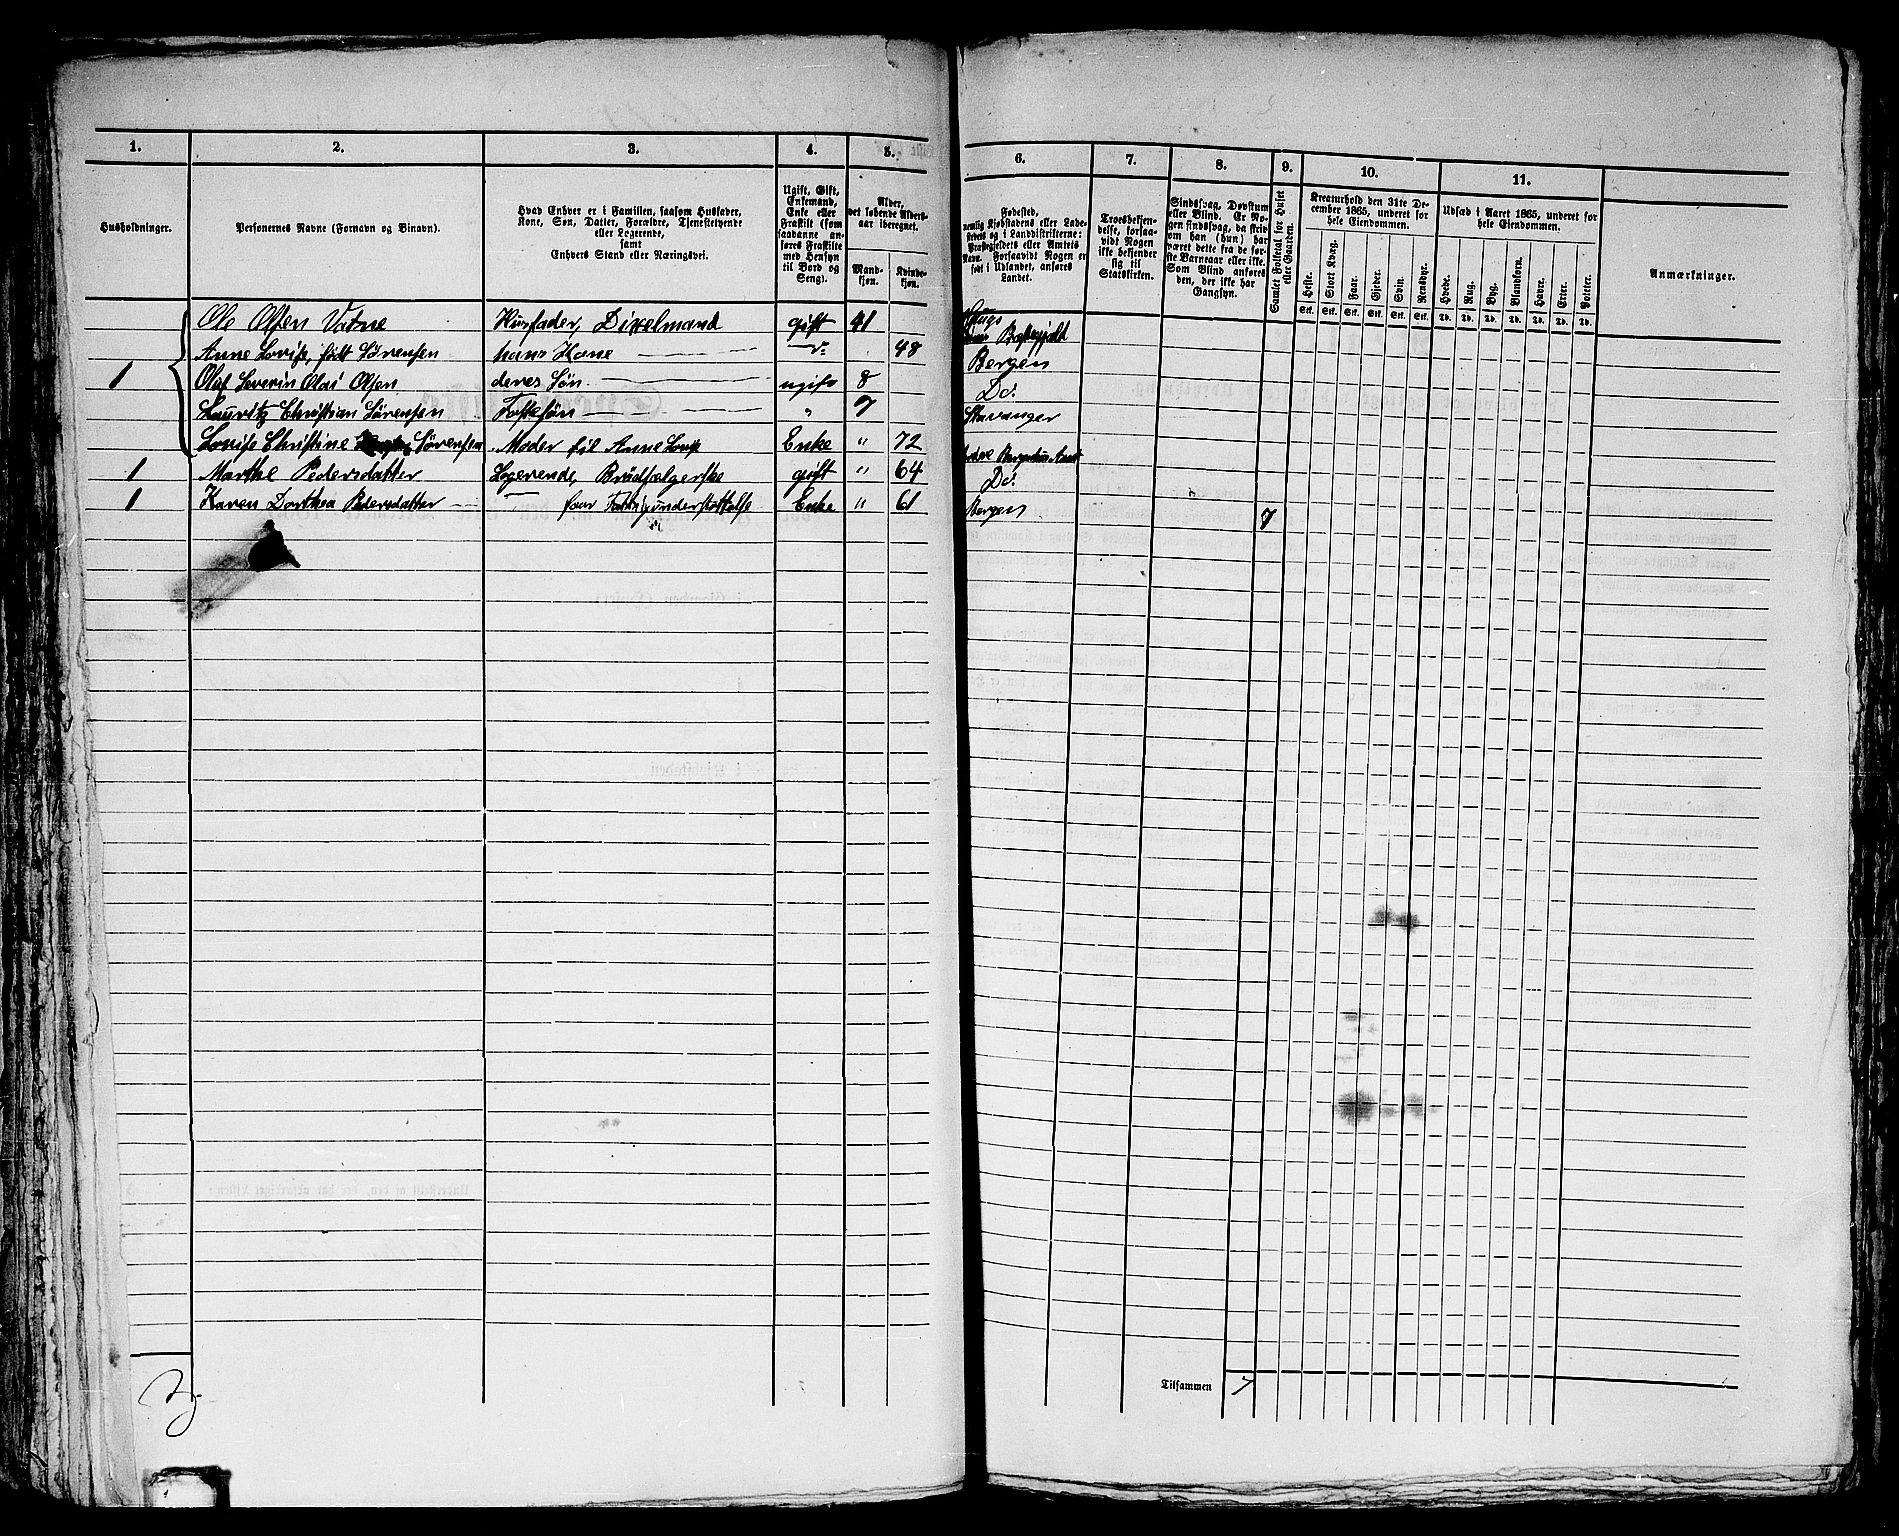 1. 2. 3. 4. 5. 6. 7. 8. 9. 10. 11.
Husholdninger.
Personernes Navne (Fornavn og Binavn).
Hvad Enhver er i Familien, saasom Husfader,
Kone, Søn, Datter, Forældre, Tjenestetyende
eller Logerende,
samt
Enhvers Stand eller Næringsvei.
Ugift, Gift,
Enkemand,
Enke eller
Fraskilt (som
saadanne an-
føres Fraskilte
med Hensyn
til Bord og
Seng).
Alder,
det løbende Alders-
aar iberegnet.
Mand-
kjøn.
Kvinde-
kjøn.
Fødested,
nemlig Kjøbstadens eller Lade-
stedets og i Landdistrikterne:
Præstegjeldets eller Amtets
Navn. Forsaavidt Nogen er
født i Udlandet, anføres
Landet.
Troesbekjen-
delse, forsaa-
vidt Nogen
ikke bekjender
sig til
Statskirken.
Sindssvag, Døvstum
eller Blind. Er No-
gen sindssvag, da skriv
om han (hun) har
været dette fra de før-
ste Barneaar eller ikke.
Som Blind anføres
den, der ikke har
Gangsyn.
Samlet Folketal for Huset
eller Gaarden.
Kreaturhold den 31te De-
cember 1865, underet for
hele Eiendommen.
Heste. Stort Kvæg. Faar. Gjeder. Svin. Rensdyr.
Stk. Stk. Stk. Stk. Stk. Stk.
Udsæd i Aaret 1865, underet for
hele Eiendommen.
Hvede. Rug. Byg. Blandkorn. Havre. Erter. Poteter.
Td. Td. Td. Td. Td. Td. Td.
Anmærkninger.
Ole Olsen Vatne Husfader, Dixelmand gift 41 Præstegjeldt
Anne Lovise, født Sørensen hans Kone do 48 Bergen
1 Olaf Severin Olai Olsen deres Søn ugift 8 Do.
Lauritz Christian Sørensen Fostersøn " 7 Stavanger
Lovise Christine Sørensen Moder til Anne Lovise Enke " 72 Nordre Bergenhus Amt
1 Marthe Pedersdatter Logerende, Brødsælgerske gift " 64 Do.
1 Karen Dorthea Pedersdatter — faar Fattigunderstøttelse Enke " 61 Bergen 7
Tilsammen 7
3